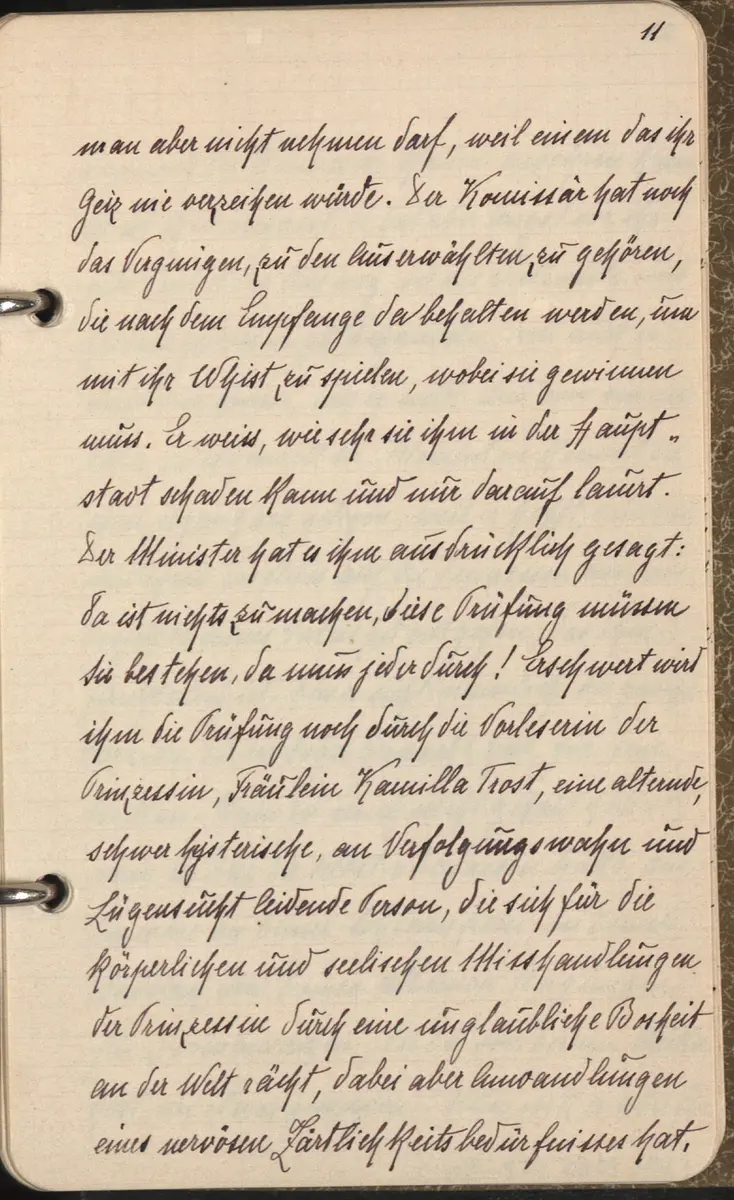 11
man aber nicht nehmen darf, weil einem das ihr
Geiz nie verzeihen würde. Der Komissär hat noch
das Vergnügen, zu den Auserwählten zu gehören,
die nach dem Empfange da behalten werden, um
mit ihr Whist zu spielen, wobei sie gewinnen
muss. Er weiss, wie sehr sie ihm in der Haupt„
stadt schaden kann und nur darauf lauert.
Der Minister hat es ihm ausdrücklich gesagt:
da ist nichts zu machen, diese Prüfung müssen
Sie bestehen, da muss jeder durch! Erschwert wird
ihm die Prüfung noch durch die Vorleserin der
Prinzessin, Fräulein Kamilla Trost, eine alternde,
schwer hysterische, an Verfolgungswahn und
Lügensucht leidende Person, die sich für die
körperlichen und seelischen Misshandlungen
der Prinzessin durch eine unglaubliche Bosheit
an der Welt rächt, dabei aber Anwandlungen
eines nervösen Zärtlichkeitsbedürfnisses hat.